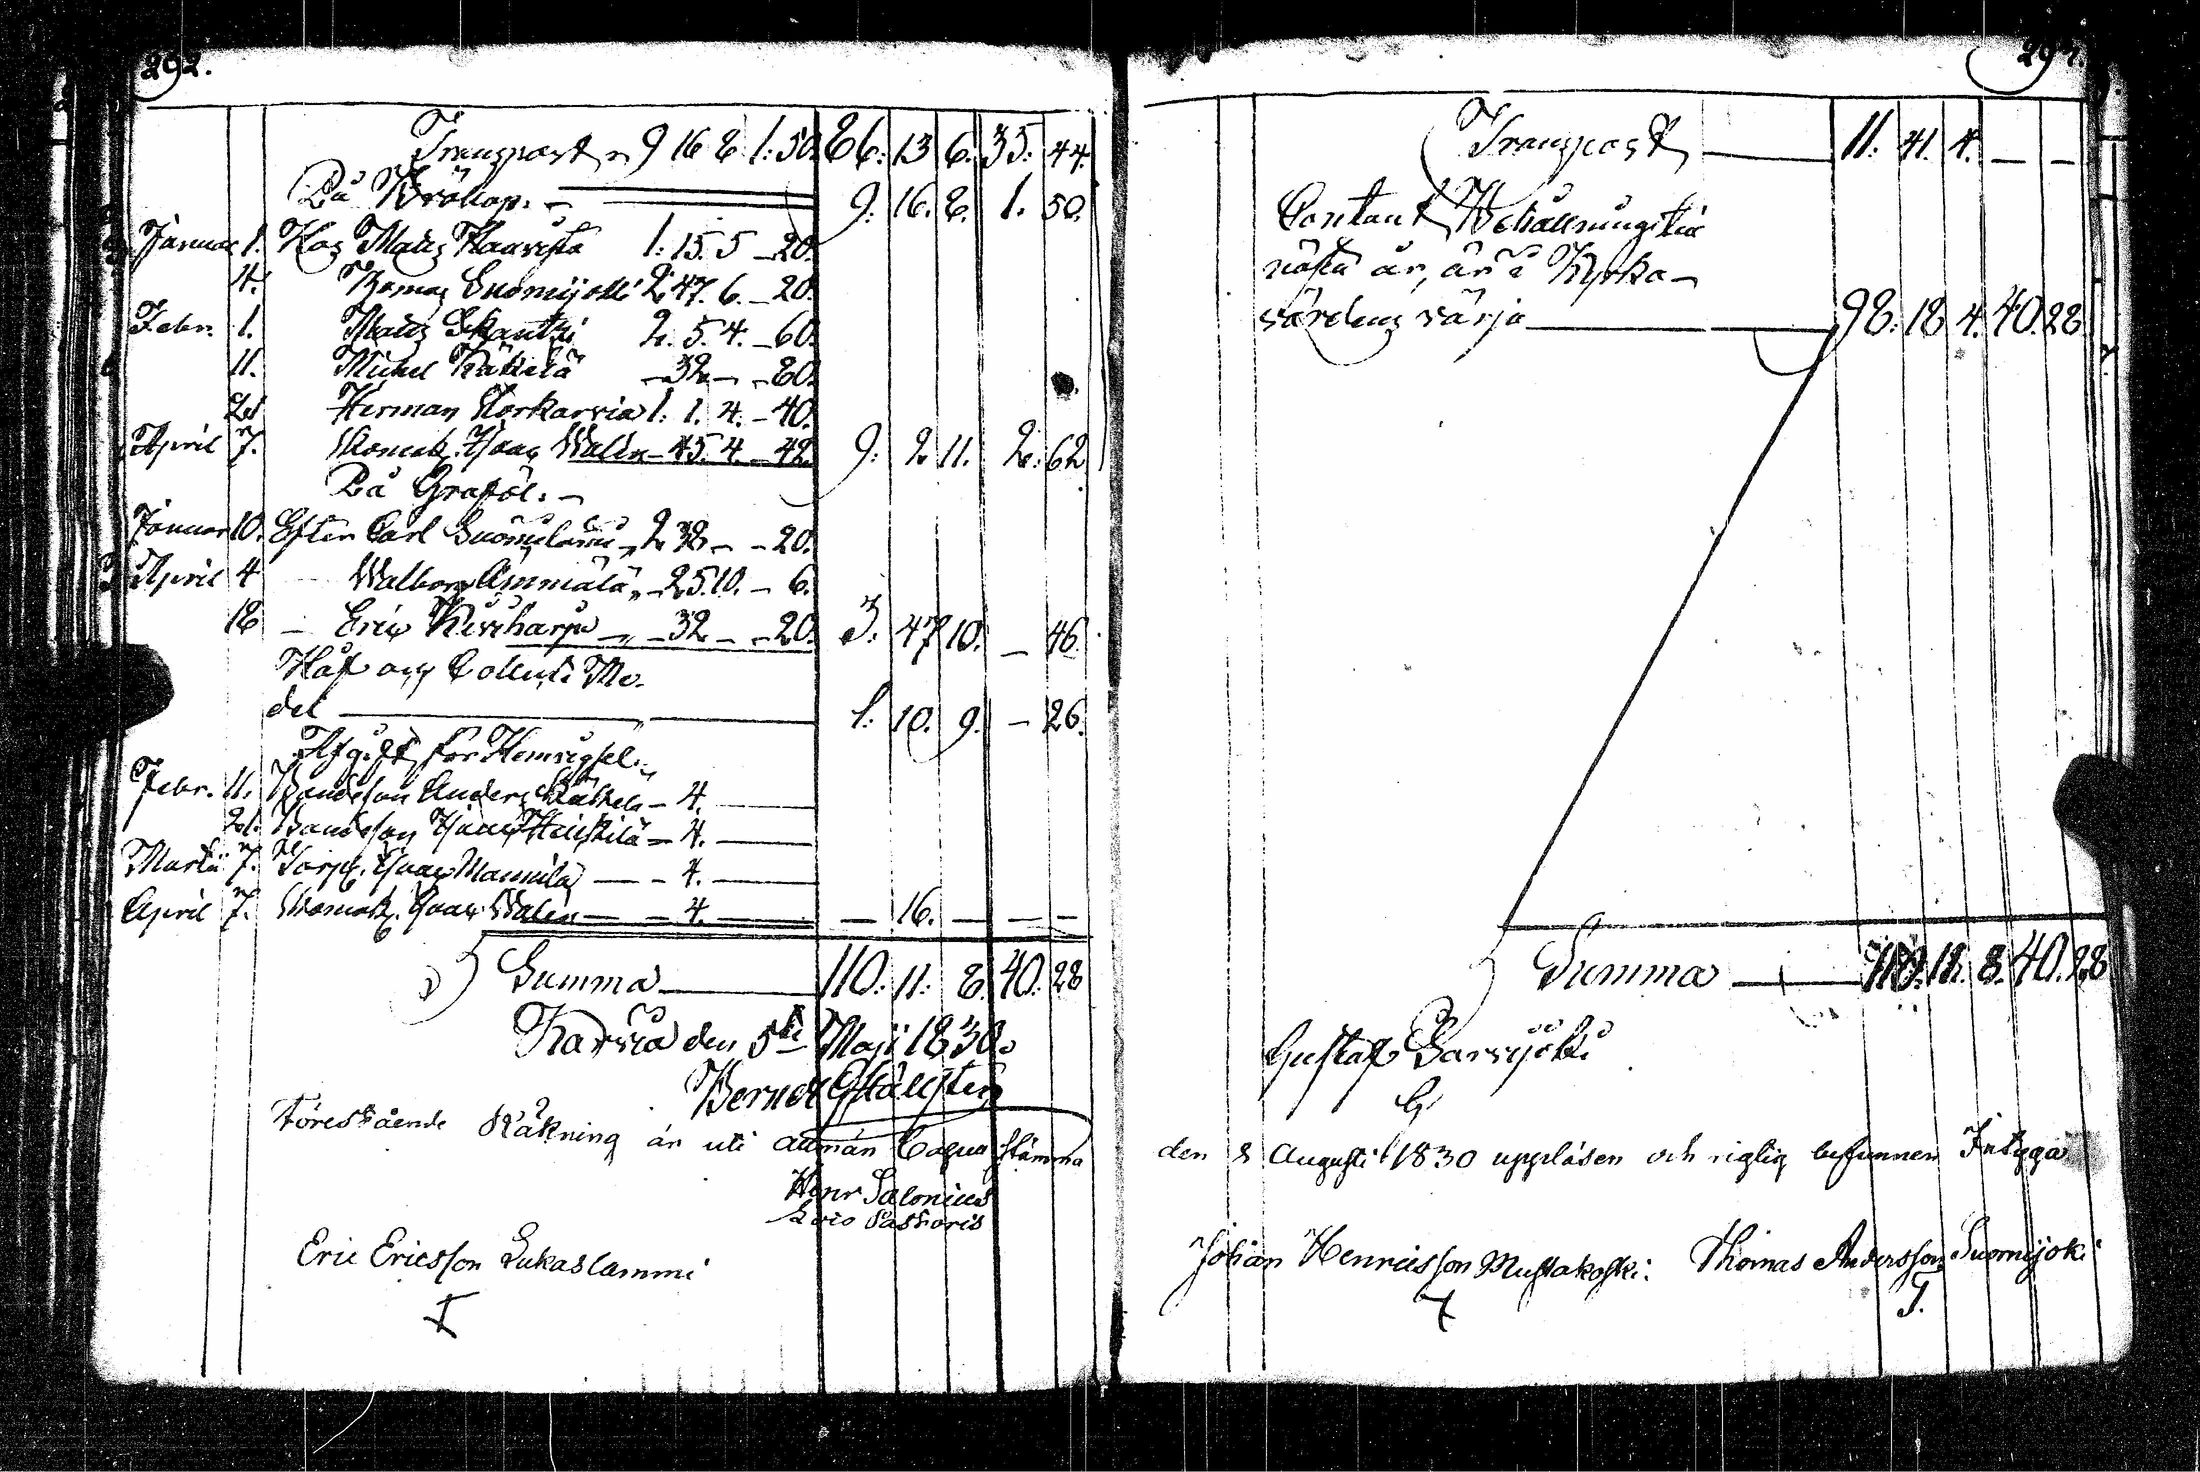 292.
Transport 9 16 8 1: 50. 86: 13 6. 35: 44.
På Bröllop. 9: 16. 8. 1. 50.
Januar 1. Hos Matts Haavisto 1: 15. 5 – 20.
4. Thomas Suomijoki 2: 47. 6. – 20.
Febr. 1. Matts Skantzi 2. 5. 4. – 60.
11. Michel Kätkelä – 32 – – 80.
21 Herman Korkarvia 1: 1. 4. – 40.
April 7. Isaac Walen – 45. 4. – 42. 9: 2. 11. 2: 62
På Graföl. –
Januar 10. Efter Carl 2. 38 – – 20.
April 4 – Walborg Ämmälä – 25. 10. – 6.
18 – Eric Kiviharju – 32 – – 20. 3: 47 10. – 46.
Håf och Collect Me-
del 1: 10. 9. – 26.
Afgift för Hemvigsel.
Febr. 11. Bondeson Anders Kätkelä – 4.
21. Bondeson Isaac Heickilä – 4.
Martii 7. Torp. Isaac Mannila – – 4.
April 7. Isaac Walen – – 4. – 16. – – –
Summa 110: 11: 8. 40: 28
Karvia den 5te Maji 1830.
Bernd Ståhlsten
Föreståande Räkning är uti allmän Socknestämma
Henr Salonius
Vice Pastoris
Eric Ericsson Lukaslammi
293.
Transport 11: 41. 4. – –
Contant Behållning till
nästa år, är i Kyrko-
värdens värjo 98: 18 4. 40. 28
Summa 110. 11. 8. 40. 28
Gustaf Sarvijoki
G
den 8 Augusti 1830 uppläsen och rigtig befunnen Intyga
Johan Henricsson Mustakoski. Thomas Andersson Suomijoki
T.